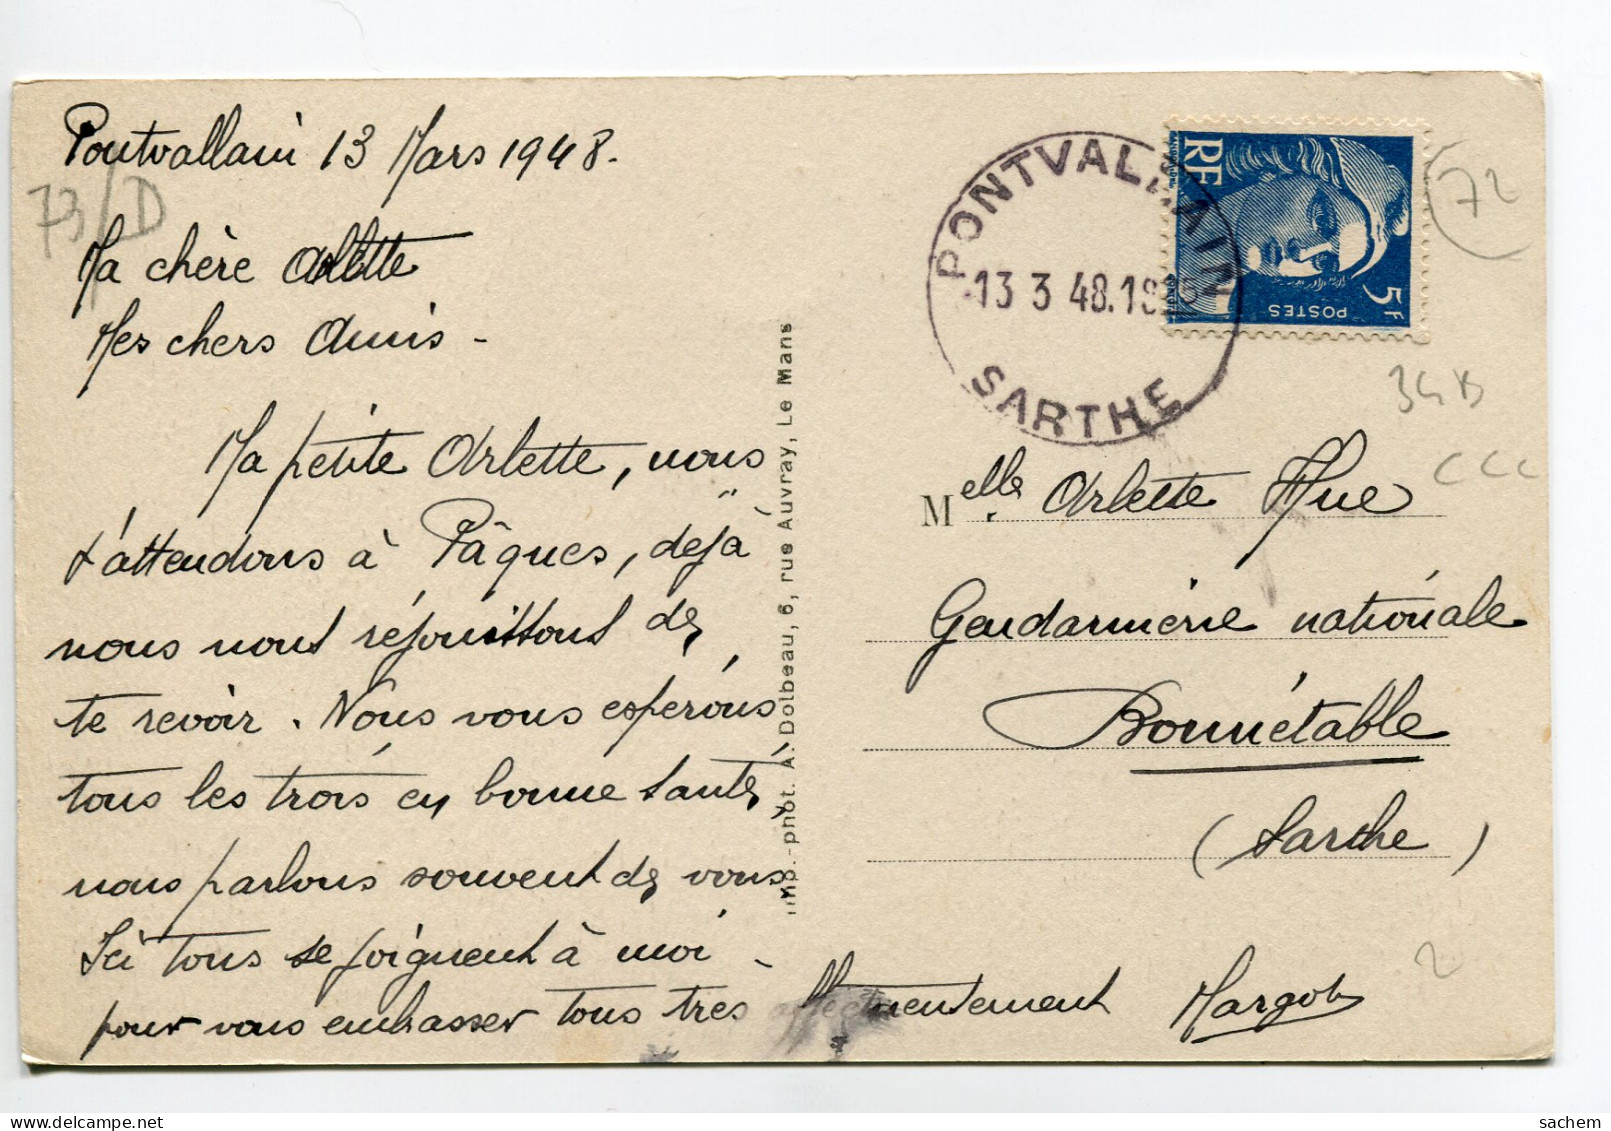 Pontvallain 13 Mars 1948.
73/D
Ma chère Arlette
Mes chers Amis -
Ma petite Arlette, nous
t'attendons à Pâques, déjà
nous nous réjouissons de
te revoir. Nous vous espérons
tous les trois en bonne santé,
nous parlons souvent de vous
Ici tous se joignent à moi -
pour vous embrasser tous très affectueusement Margot
Imp.-phot. A. Dolbeau, 6, rue Auvray, Le Mans
PONTVALLAIN
13 3 48.18
SARTHE
RF
POSTES
5F
72
34B
CCC
Melle. Arlette Hue
Gendarmerie nationale
Bonnétable
(Sarthe)
2
sachem